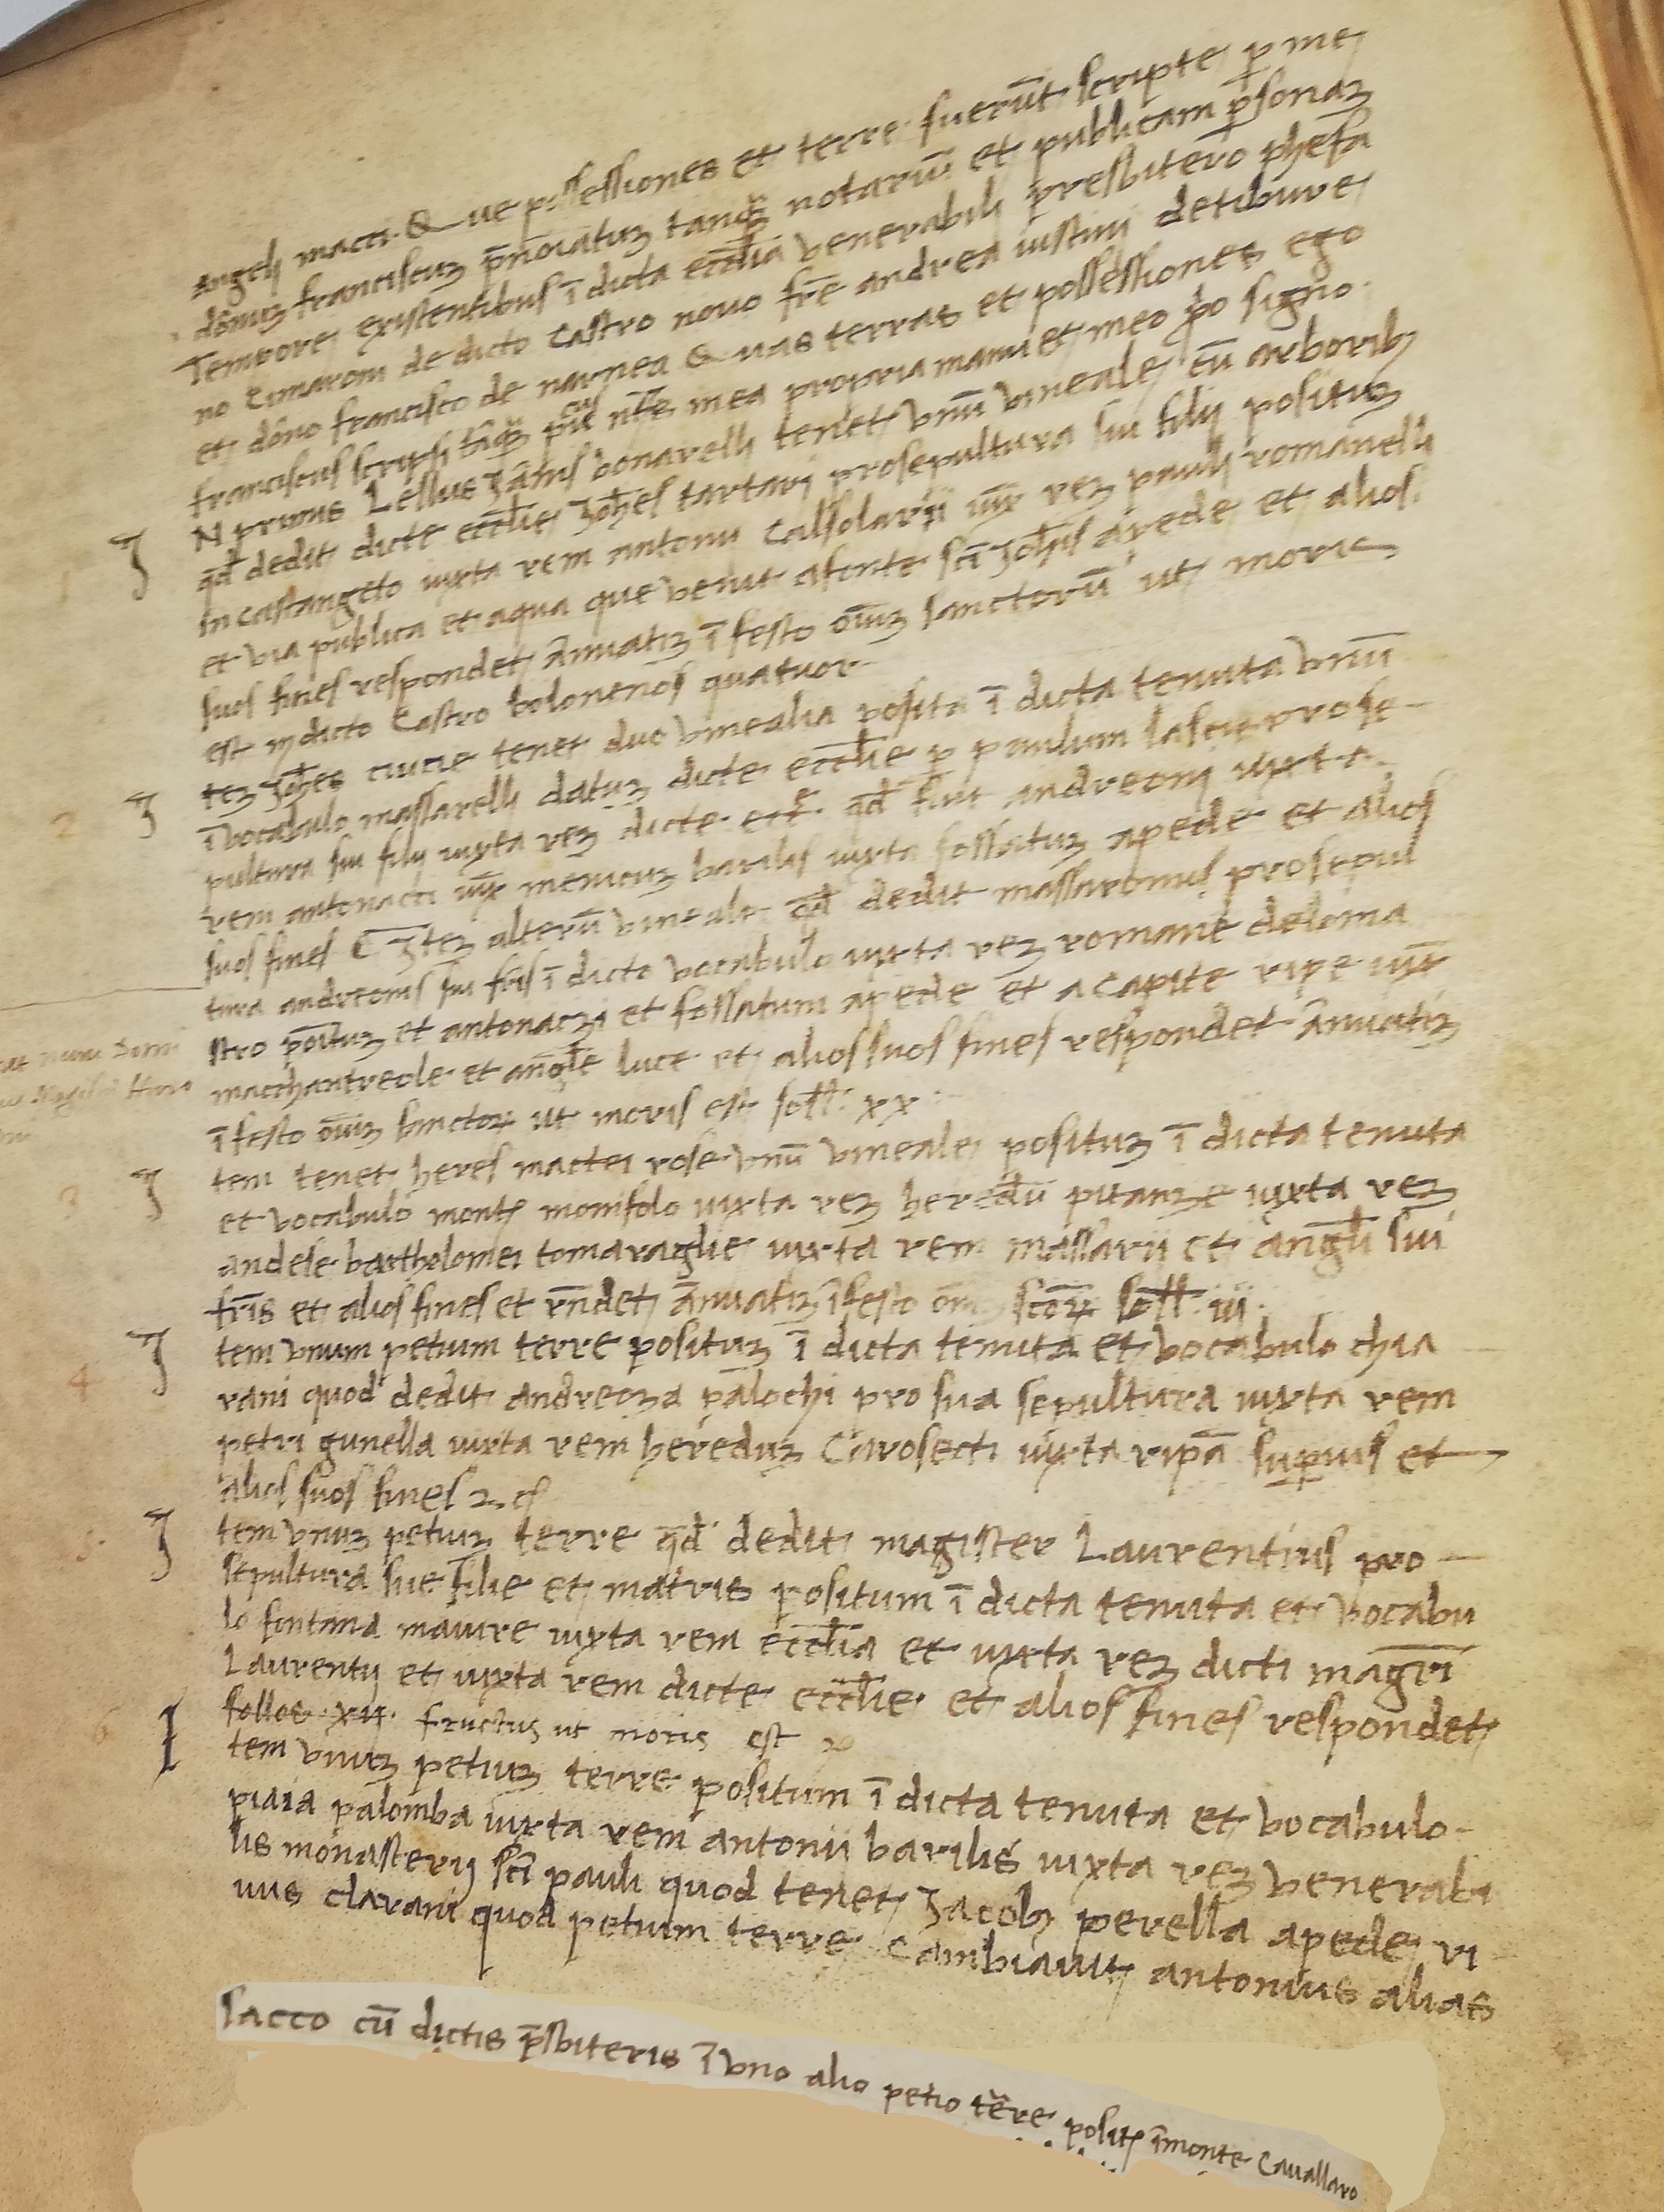 angeli macci. Que possessiones et terre fuerūt scripte p me
dōnuz franciscuz p̄noiatuz tanq̄ȝ notariū et publicam p̄sonaȝ
Tempore existentibus ī dicta eccl̄ia venerabili presbitero
no de dicto Castro nouo fr̄e andrea iustini
et dōno francisco de narnea Quas terras et possessiones ego
franciscus scripsi mea propria manu et meo signo.
N primis bonarelli tenet vnū vineale cū arboribȝ
qd̄ dedit dicte eccl̄ie Joh̄es tartari pro sepultura sui filij posituȝ
in castangeto iuxta rem antonii Calsolarii iux̄ reȝ pauli romanelli
et via publica et aqua que venit a fonte sc̄i Joh̄is a pede et alios
suos fines respondet ānuatiȝ ī festo oīuȝ sanctorū ut moris
est in dicto Castro bolonenos quatuor
teȝ Joh̄es ciucie tenet duo vinealia posita ī dicta tenuta vnū
ī vocabulo massarelli datuȝ dicte eccl̄ie p paulum pro se
pultura sui filij iuxta reȝ dicte ecc̄ qd̄ fuit andreoni iuxta
rem antonacci iux̄ menicuȝ barilis iuxta fossatuȝ a pede et alios
suos fines C Jteȝ alterū vineale qd̄ dedit massaronus pro sepul
tura andreonis sui fr̄is ī dicto vocabulo iuxta reȝ
et antonaczi et fossatum a pede et a capite ripe iux̄
et luce et alios suos fines respondet ānuatiȝ
ī festo oīuȝ sanctoꝝ ut moris est soll̄. xx
tem tenet heres mactei rose vnū vineale posituȝ ī dicta tenuta
et vocabulo monte monifolo iuxta reȝ heredū pitanze iuxta reȝ
andele bartholomei tomaraglie iuxta rem massarij et angl̄i sui
fr̄is et alios fines et rn̄det ānuatiȝ ī festo scōꝝ soll̄. iij.
tem vnum petium terre posituȝ ī dicta tenuta et vocabulo chia
rani quod dedit andreoza palochi pro sua sepultura iuxta rem
petri gunella iuxta rem hereduȝ Ciarosecti iuxta ripā supius et
alios suos fines
tem vnuȝ petiuȝ terre qd̄ dedit magister Laurentius pro
sepultura sue filie et matris positum ī dicta tenuta et vocabu
lo fontana maiure iuxta rem eccl̄ia et iuxta reȝ dicti magr̄i
Laurentij et iuxta rem dicte eccl̄ie et alios fines respondet
sollos xij. fructus ut moris est
tem vnuȝ petiuȝ terre positum ī dicta tenuta et vocabulo
piaia palomba iuxta rem antonii barilis iuxta reȝ venerabi
lis monasterij sc̄i pauli quod tenet Jacobȝ perella a pede ri
uus clarani quod petium terre Cambiauit antonius alias
sacco cū dictis p̄sbiteris ī vno alio petio tēre posit ī monte Cauallaro